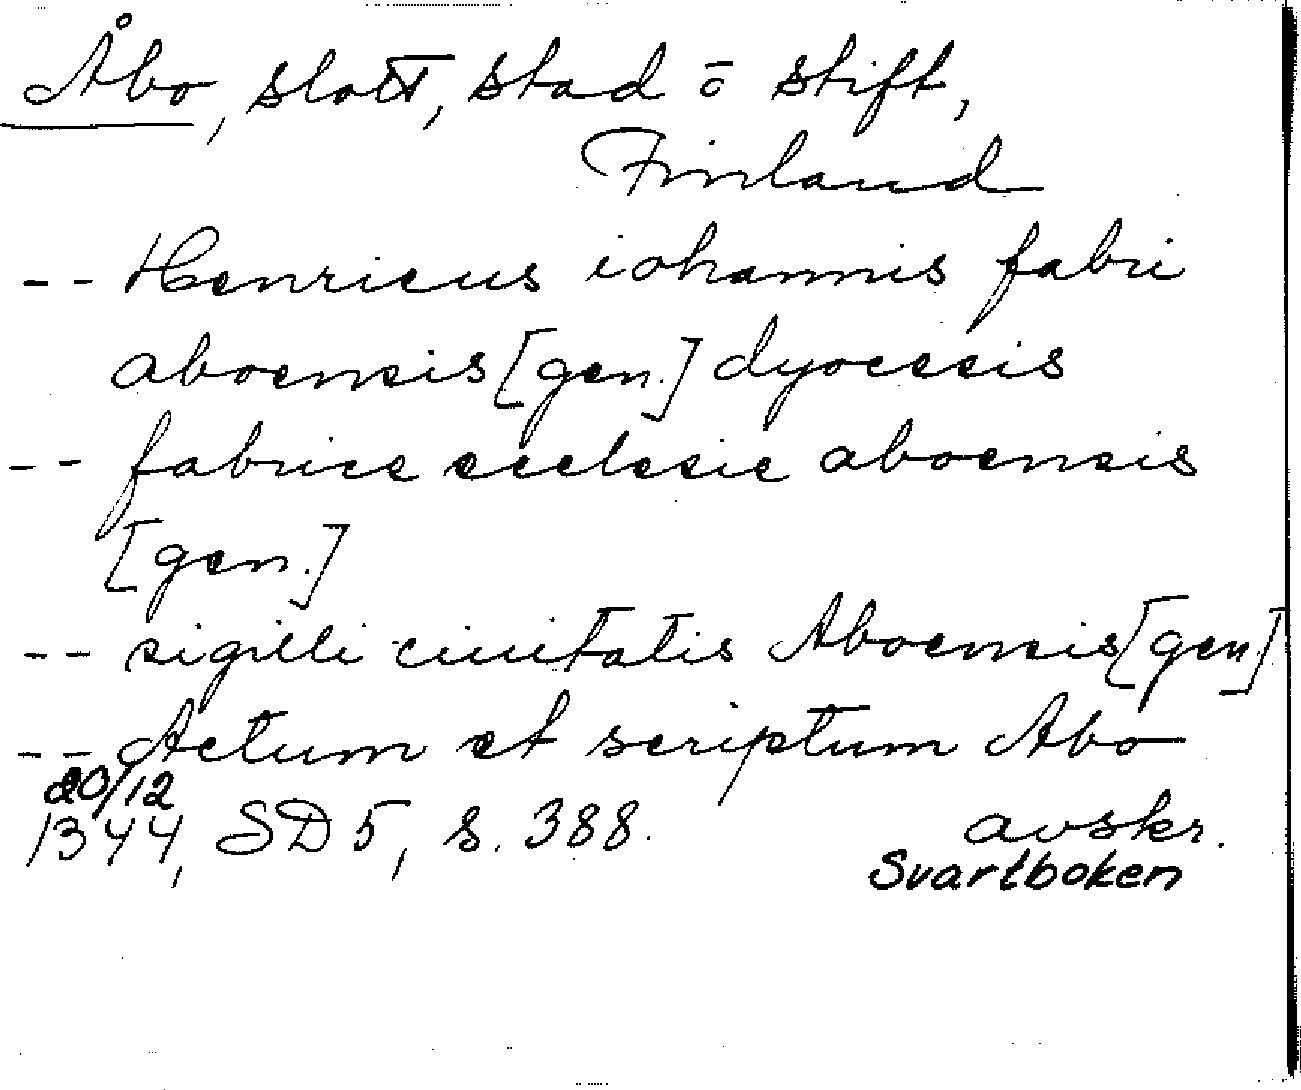 Åbo, slott, stad ō stift,
Finland
-- Henricus iohannis fabri
aboensis [gen.] dyocesis
-- fabrice ecclesie aboensis
[gen.]
-- sigilli ciuitatis Aboensis [gen.]
-- Actum et scriptum Abo
20/12
1344, SD 5, s. 388. avskr.
Svartboken